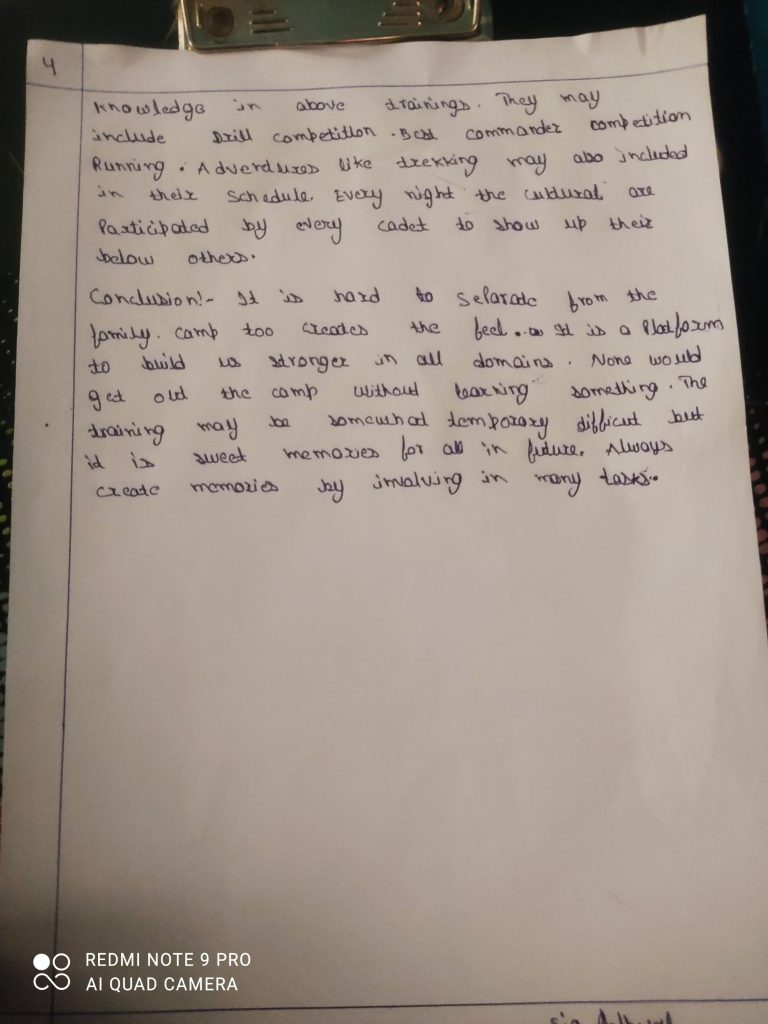 4
Knowledge in above trainings. They may
include Drill competition. Best commander competition
Running. Adventures like trekking may also included
in their schedule. Every night the cultural are
Participated by every cadet to show up their
below others.
Conclusion:- It is hard to Selarate from the
family. camp too creates the feel... It is a Platform
to build us stronger in all domains. None would
get out the camp without learning something. The
training may be somewhat temporary difficut but
it is sweet memories for all in future. Always
create memories by involving in many tasks.
REDMI NOTE 9 PRO
AI QUAD CAMERA